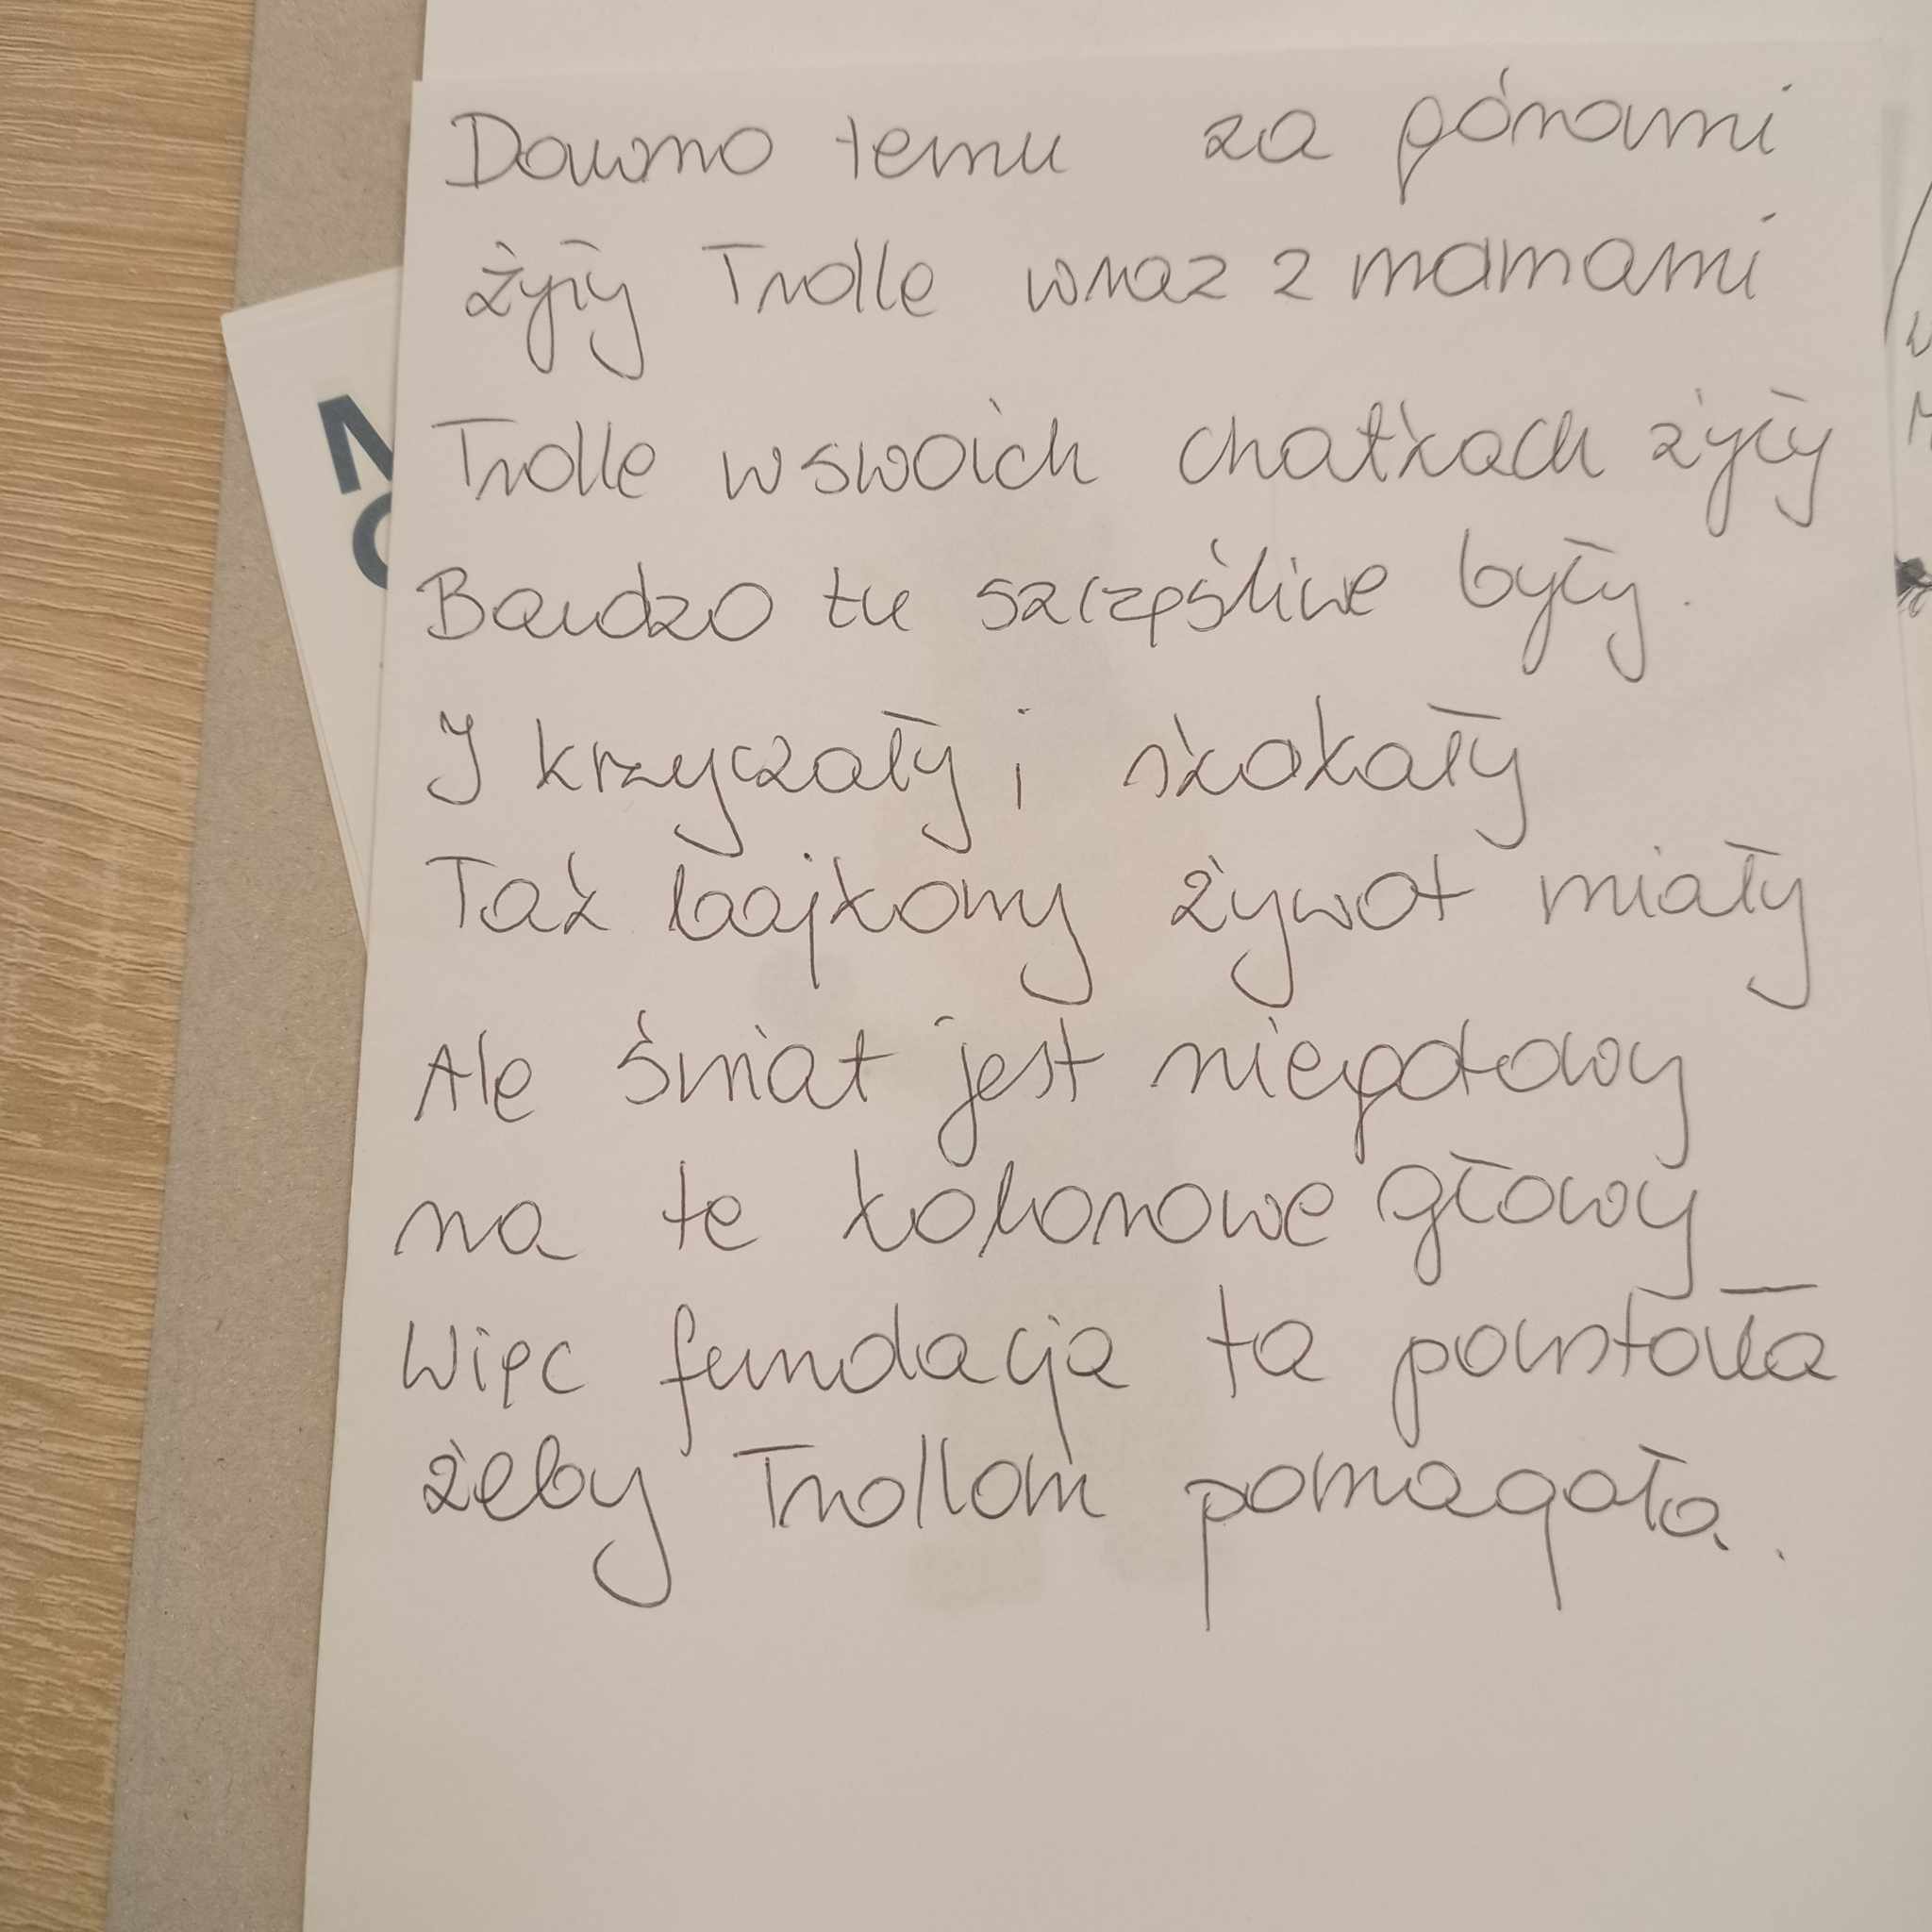 Dawno temu za górami
żyły Trolle wraz z mamami
Trolle w swoich chatkach żyły
Bardzo tu szczęśliwe były.
I krzyczały i skakały
Tak bajkowy żywot miały
Ale świat jest niegotowy
na te kolorowe głowy
Więc fundacja ta powstała
żeby Trollom pomagała.